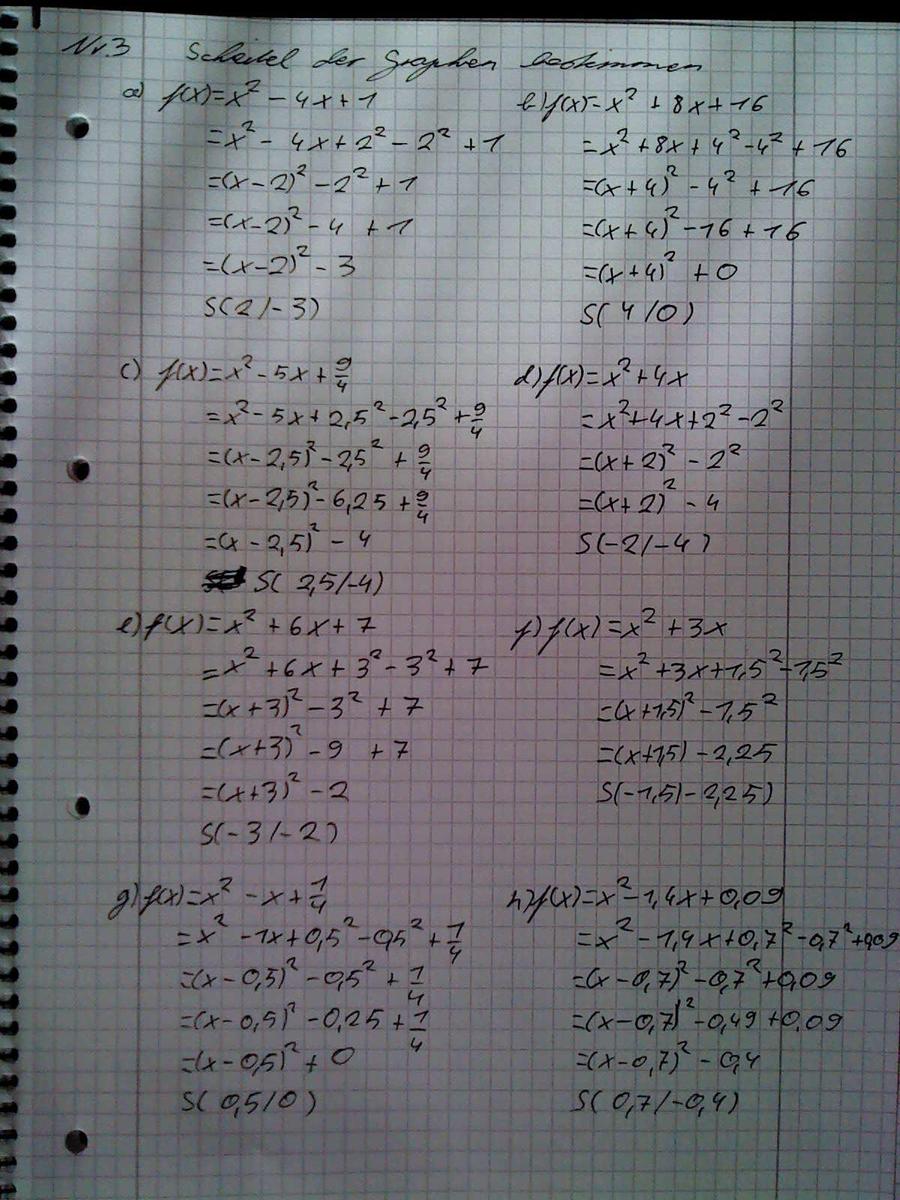 Nr.3 Scheitel der Graphen bestimmen
a) f(x)=x² - 4x+1
=x² - 4x+2² - 2² + 1
=(x-2)² - 2² + 1
=(x-2)² - 4 + 1
=(x-2)² - 3
S(2/-3)
b) f(x)=x² + 8x+16
=x² + 8x + 4² - 4² + 16
=(x+4)² - 4² + 16
=(x+4)² - 16 + 16
=(x+4)² + 0
S( 4/0)
c) f(x)=x² - 5x + 9/4
=x² - 5x + 2,5² - 2,5² + 9/4
=(x-2,5)² - 2,5² + 9/4
=(x-2,5)² - 6,25 + 9/4
=(x-2,5)² - 4
S( 2,5/-4)
d) f(x)=x² + 4x
=x²+4x+2² - 2²
=(x+2)² - 2²
=(x+2)² - 4
S(-2/-4)
e) f(x)=x² + 6x + 7
=x² + 6x + 3² - 3² + 7
=(x+3)² - 3² + 7
=(x+3)² - 9 + 7
=(x+3)² - 2
S(-3/-2)
f) f(x)=x² + 3x
=x² + 3x + 1,5² - 1,5²
=(x+1,5)² - 1,5²
=(x+1,5) - 2,25
S(-1,5/-2,25)
g) f(x)=x² - x + 1/4
=x² - 1x + 0,5² - 0,5² + 1/4
=(x-0,5)² - 0,5² + 1/4
=(x-0,5)² - 0,25 + 1/4
=(x-0,5)² + 0
S( 0,5/0)
h) f(x)=x² - 1,4x + 0,09
=x² - 1,4x + 0,7² - 0,7² + 0,09
=(x-0,7)² - 0,7² + 0,09
=(x-0,7)² - 0,49 + 0,09
=(x-0,7)² - 0,4
S( 0,7/-0,4)